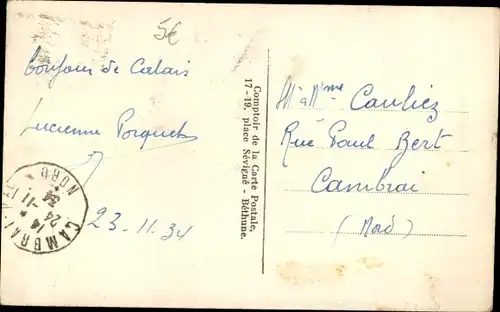 5€
Bonjour de Calais
Lucienne Porquet
23.11.34
CAMBRAI
NORD
14 *
24 -11
34
Comptoir de la Carte Postale,
17-19, place Sévigné - Béthune.
Mr & Mme Cauliez
Rue Paul Bert
Cambrai
(Nord)